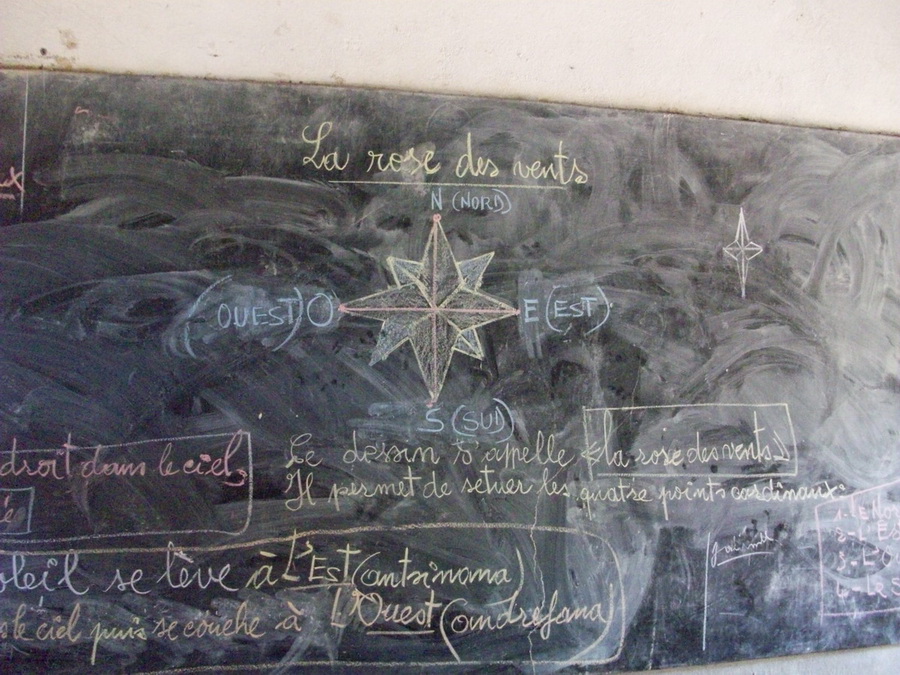 La rose des vents
N (NORD)
(OUEST) O
E (EST)
S (SUD)
droit dans le ciel,
Le dessin s'apelle «la rose des vents»
Il permet de situer les quatre points cardinaux:
oleil se lève à L'Est (antsinana)
le ciel puis se couche à L'Ouest (andrefana)
1. le No
2. l'Es
3. l'O
4. le S